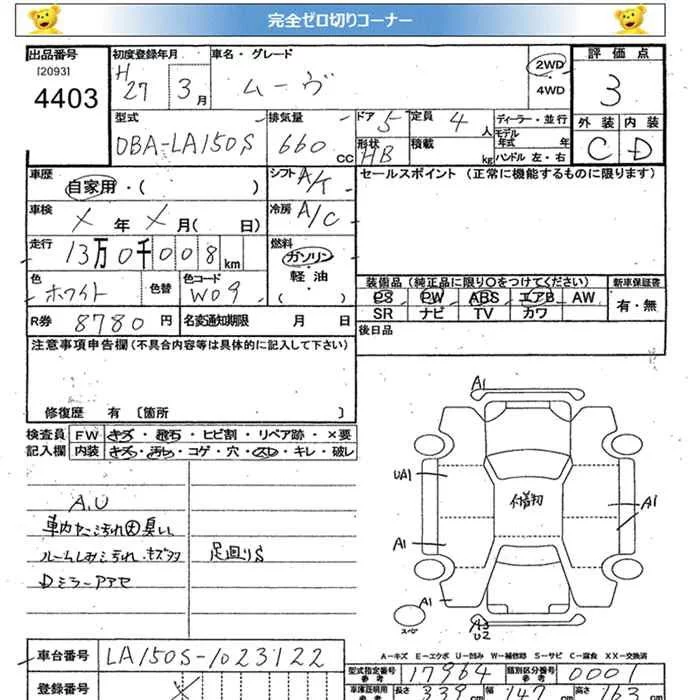 完全ゼロ切りコーナー
出品番号 初度登録年月 車名・グレード 2WD 評価点
[2093] H 27 3月 ムーヴ 4WD 3
4403
型式 排気量 ドア 5 定員 4人 ディーラー・並行 外装 内装
DBA-LA150S 660cc 形状 HB 積載 kg モデル年式 年 C D
ハンドル 左・右
車歴 シフト A/T セールスポイント (正常に機能するものに限ります)
自家用・( )
車検 冷房 A/C
X 年 X 月( 日)
走行 燃料
13万0千008km ガソリン・軽油
( )
色 色替 色コード 装備品 (純正品に限り○をつけてください) 新車保証書
ホワイト W09 PS PW ABS エアB AW 有・無
SR ナビ TV カワ
R券 8780円 名変通知期限 月 日 後日品
注意事項申告欄(不具合内容等は具体的に記入して下さい)
修復歴 有 [箇所 ]
検査員 FW キズ・飛石・ヒビ割・リペア跡・×要
記入欄 内装 キズ・汚れ・コゲ・穴・スレ・キレ・破レ
A1
UA1
A1
A1
A1
A1
A3
U2
スペア
A.U
ルームしみ汚れ.キズタタ 足回りS
Dミラーアアセ
A-キズ E-エクボ U-凹み W-補修跡 S-サビ C-腐食 XX-交換済
車台番号 LA150S-1023122
型式指定番号 参考 17964 類別区分番号 参考 0001
登録番号 X 車庫証明用 参考 長さ 339cm 幅 147cm 高さ 163cm